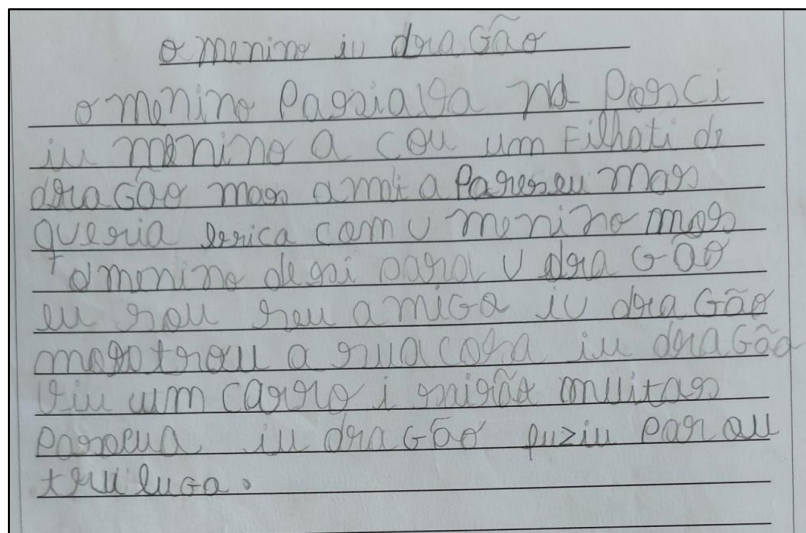 o menino iu dragão
o menino Pasiava na Posci
iu menino a cou um Filhoti de
dragão mas a mãi a Pareseu mas
queria brica com u menino mas
o menino desi para u dragão
eu sou seu amiga iu dragão
mostrou a sua casa iu dragão
viu um carro i saisão muitas
Pasoua iu dragão fuziu Par ou
tru luga.